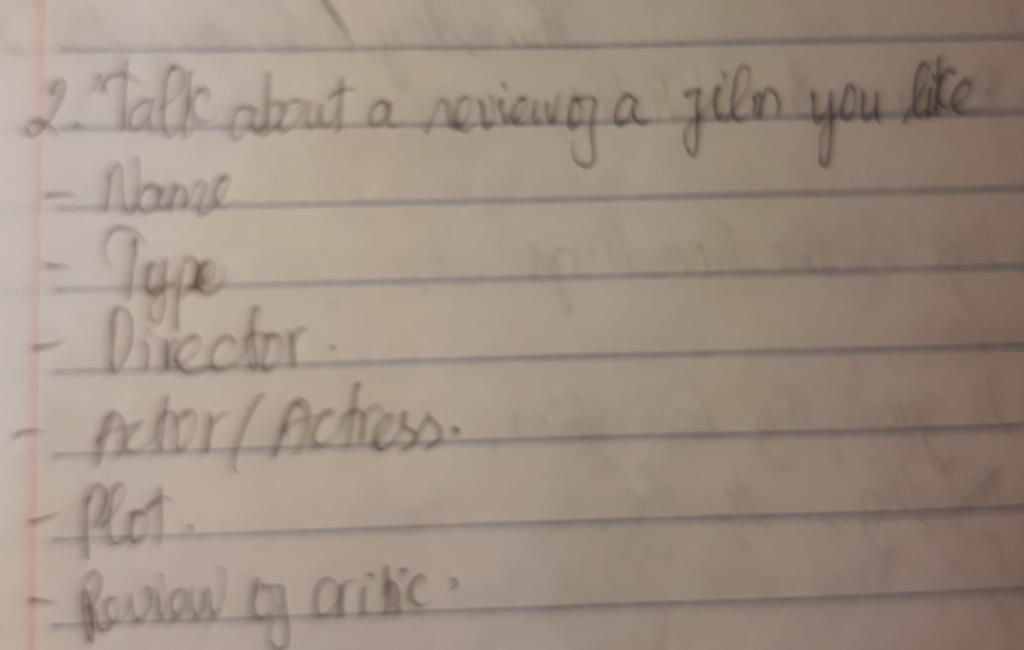 2. Talk about a review of a film you like
- Name
- Type
- Director.
- Actor/Actress.
- Plot.
- Review of critic.